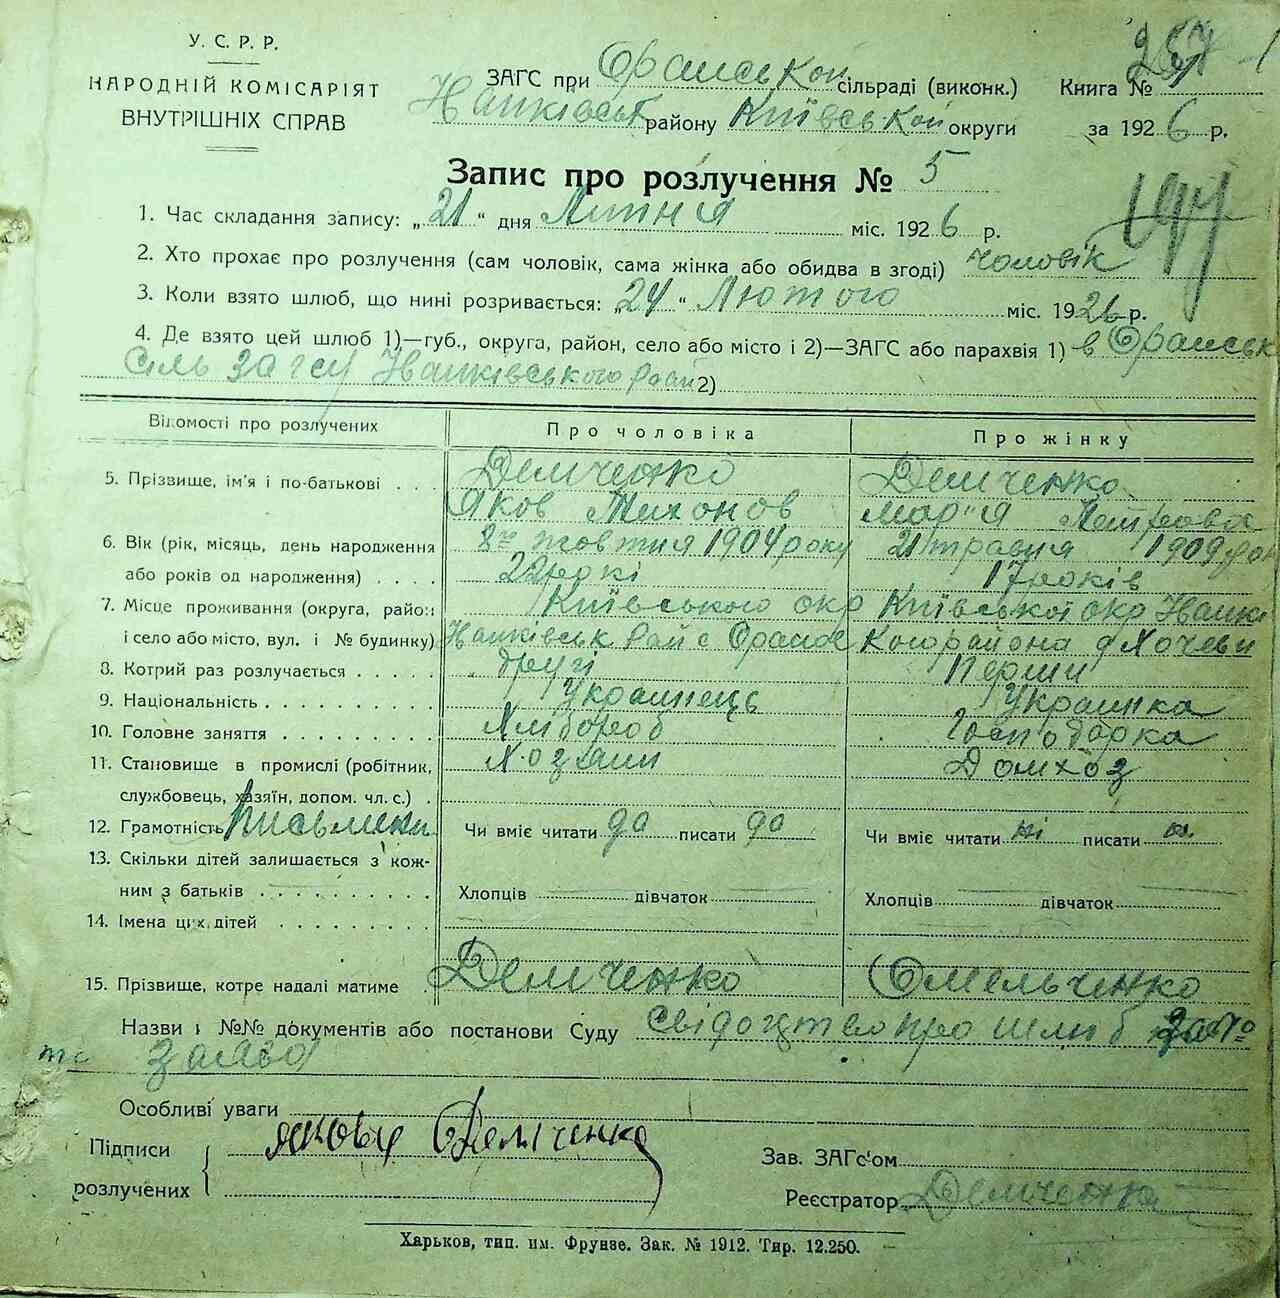 У. С. Р. Р.
НАРОДНІЙ КОМІСАРІЯТ
ВНУТРІШНІХ СПРАВ
ЗАГС при Ораньской сільраді (виконк.) Книга №
району Київськой округи за 1926 р.
Запис про розлучення № 5
197
1. Час складання запису: „21“ дня Липня міс. 1926 р.
2. Хто прохає про розлучення (сам чоловік, сама жінка або обидва в згоді) чоловік
3. Коли взято шлюб, що нині розривається: „24“ Лютого міс. 1926 р.
4. Де взято цей шлюб 1)—губ., округа, район, село або місто і 2)—ЗАГС або парахвія 1) в Ораньск
Сіль загсу Іванківського рай 2)
Відомості про розлучених
Про чоловіка
Про жінку
5. Прізвище, ім'я і по-батькові . . . Демченко Демченко
Яков Тихонов Мар"я Петрова
6. Вік (рік, місяць, день народження 8го жовтня 1904 року 21 травня 1909 рок
або років од народження) . . . . 22 рокі 17 років
7. Місце проживання (округа, район Київського окр Київської окр Іванкі
і село або місто, вул. і № будинку) Іванківськ Рай с Оране Когорайона с Хочеви
8. Котрий раз розлучається . . . . . другі Перши
9. Національність . . . . . . . . . . Украинець Украинка
10. Головне заняття . . . . . . . . . Хлібороб Госп'одарка
11. Становище в промислі (робітник, Хозяин Домхоз
службовець, хазяїн, допом. чл. с.) .
12. Грамотність Письмени Чи вміє читати да писати да Чи вміє читати ні писати ні
13. Скільки дітей залишається з кож-
ним з батьків . . . . . . . . . . Хлопців дівчаток Хлопців дівчаток
14. Імена цих дітей . . . . . . . . .
15. Прізвище, котре надалі матиме . Демченко Омельченко
Назви і №№ документів або постанови Суду свідоцтво про шлюб за №
та заява
Особливі уваги
Підписи Якова Демченко
розлучених
Зав. ЗАГс'ом
Реєстратор Демченко
Харьков, тип. им. Фрунзе. Зак. № 1912. Тир. 12.250.